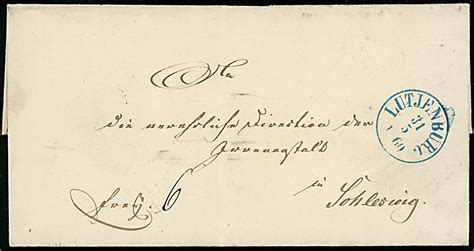 An
die verehrliche Direction der
Irrenanstalt
in Schleswig.
frey. 6
LUTJENBURG
31
5
69